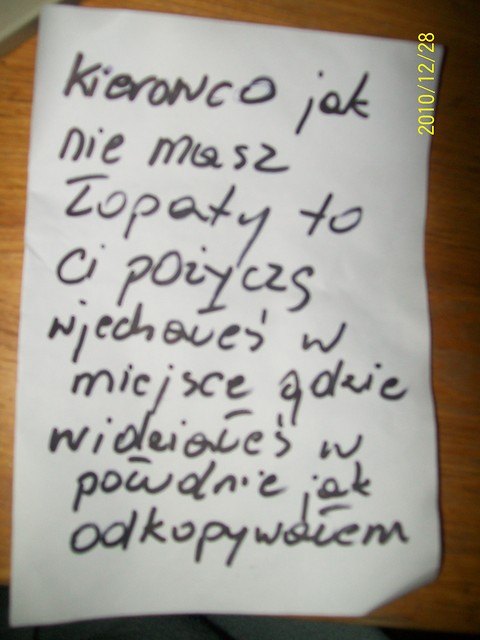 kierowco jak
nie masz
Łopaty to
ci pożyczę
wjechałeś w
miejsce gdzie
widziałeś w
południe jak
odkopywałem
2010/12/28